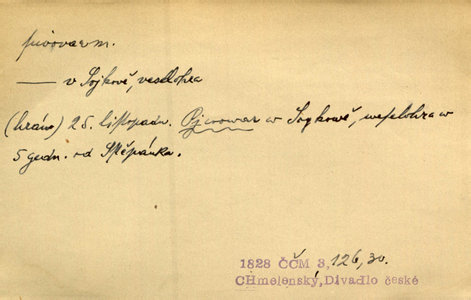 pivovar m.
— v Sojkově, veselohra
(hráno) 28. listopadu. Pjwowar w Sogkowě, weselohra w
5 gedn. od Sstěpánka.
1828 ČČM 3, 126, 30.
CHmelenský, Divadlo české